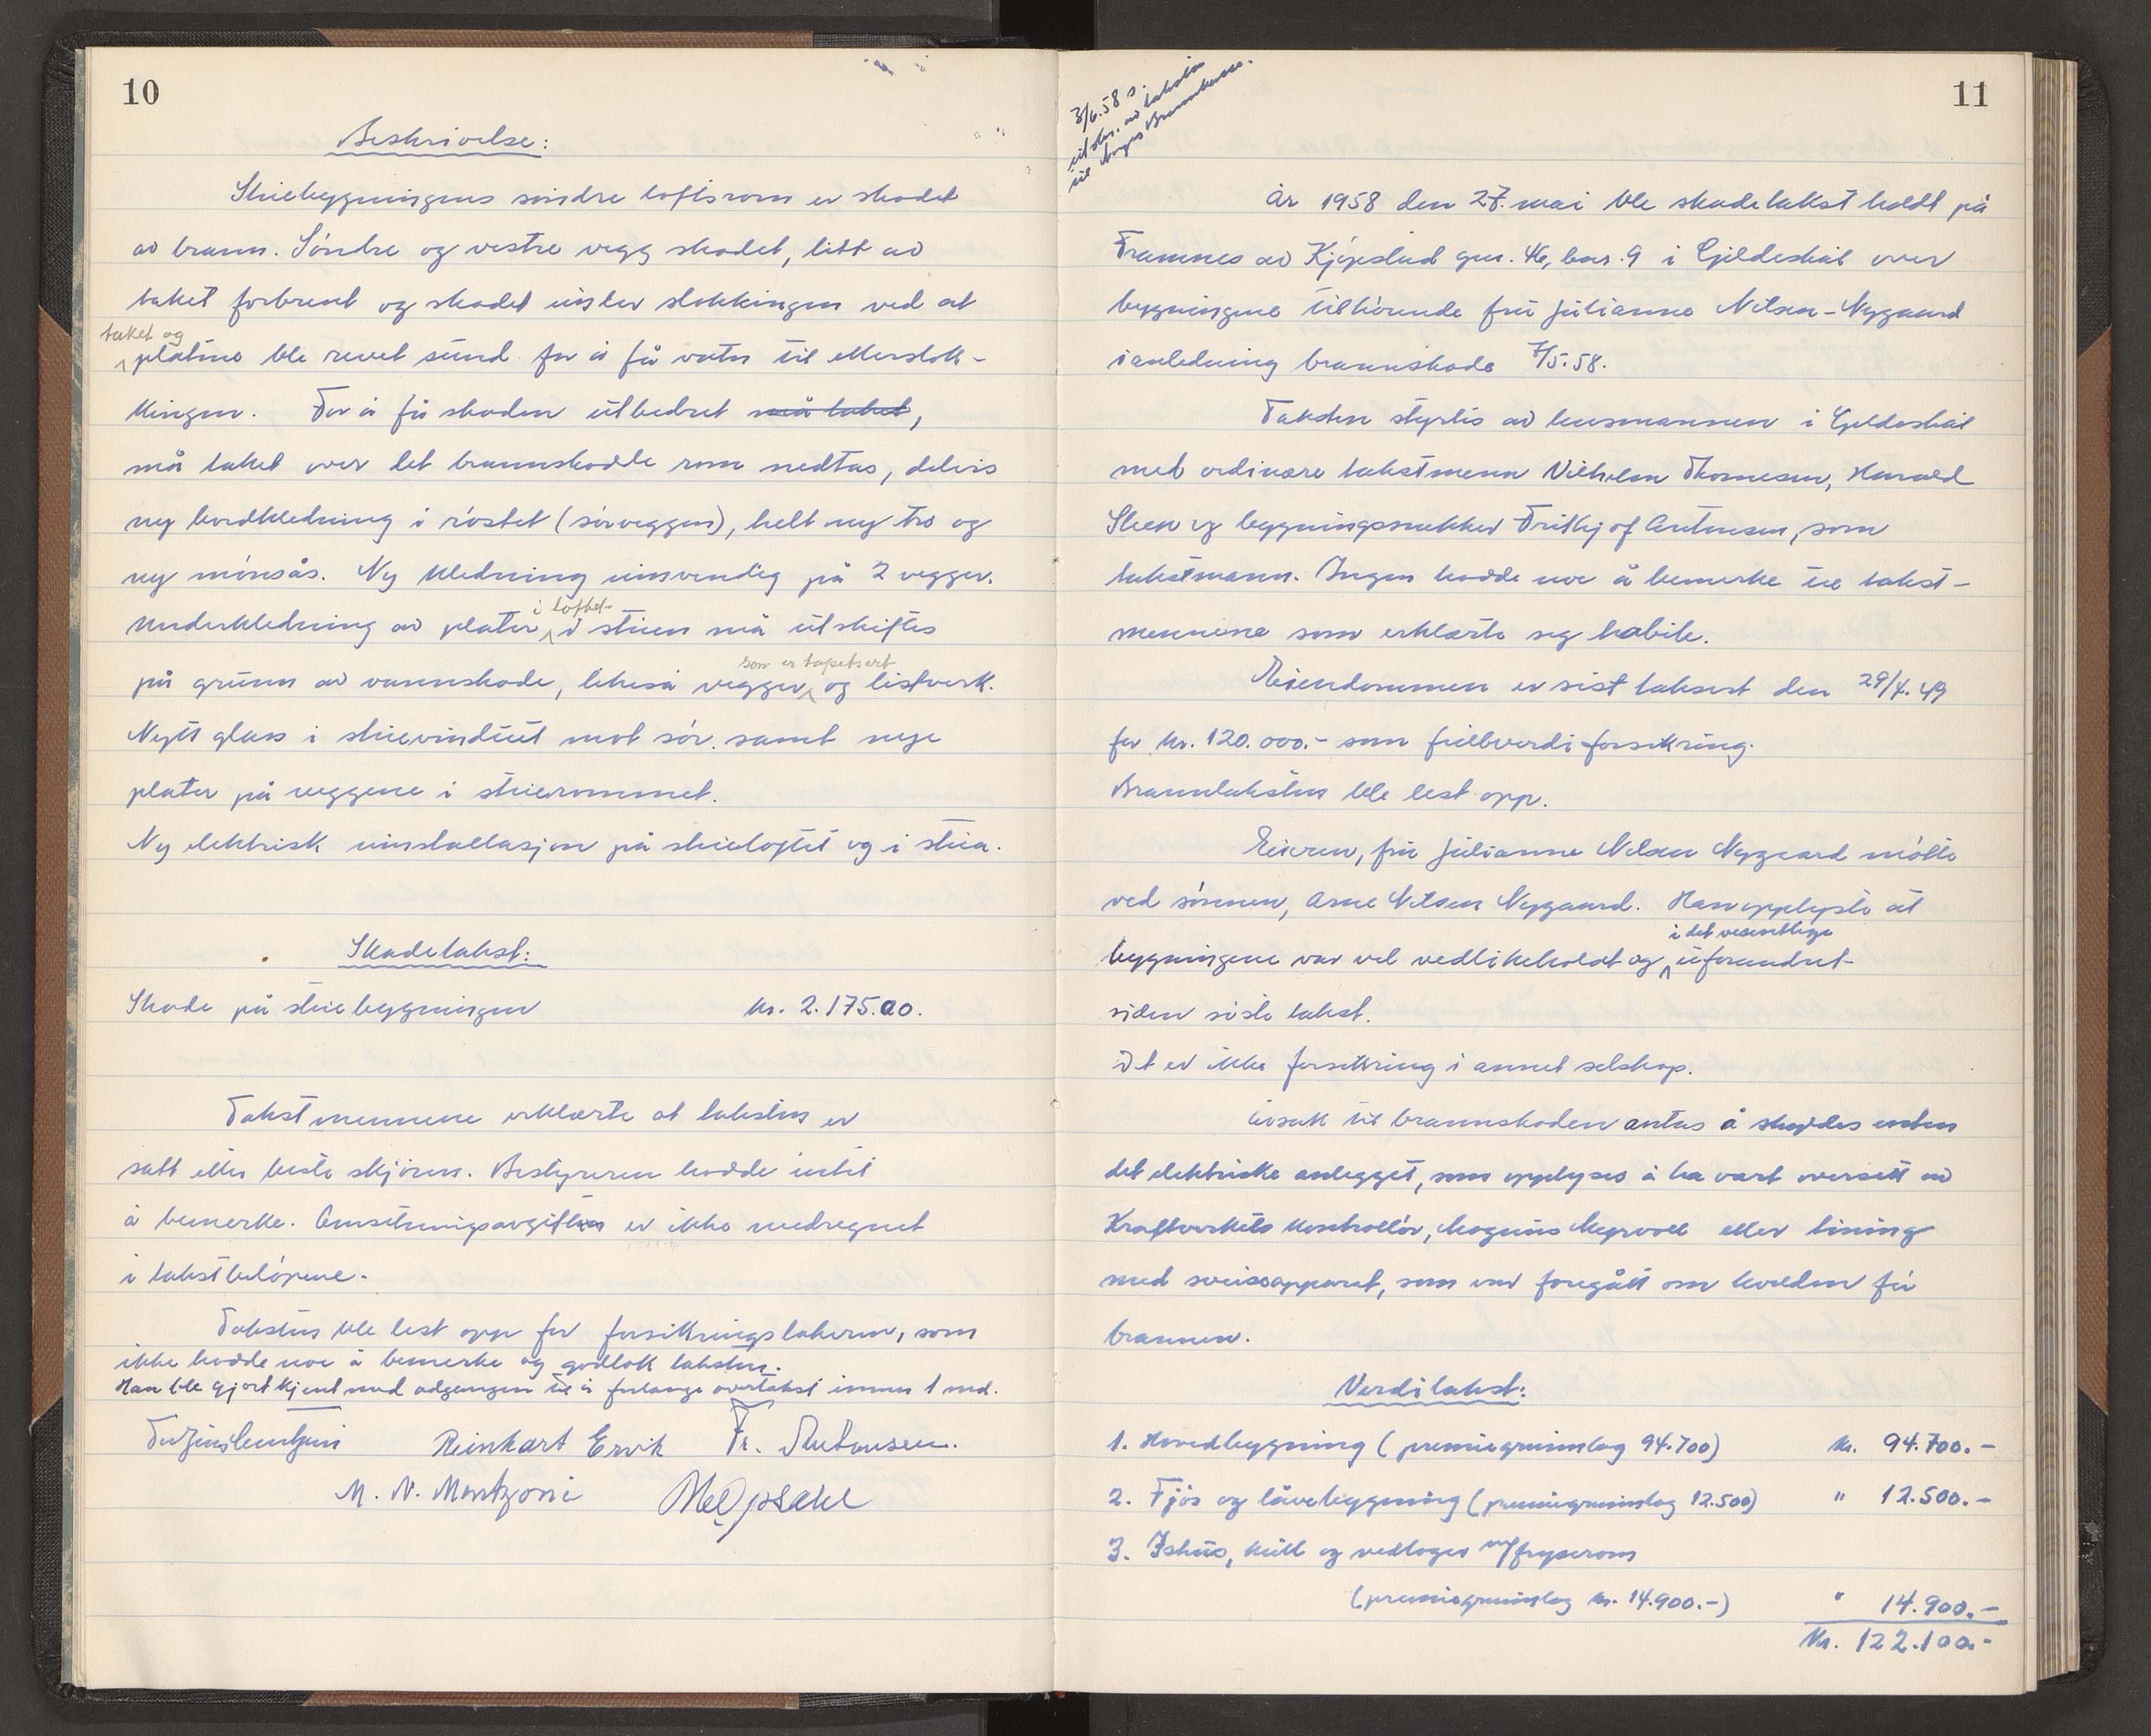 10
Beskrivelse:
Stuebygningens søndre loftsrom er skadet
av brann. Søndre og vestre vegg skadet, litt av
taket forbrent og skadet under slokkingen ved at
taket og
platene ble revet sund for å få vatn til etterslok-
kingen. For å få skaden utbedret må taket,
må taket over det brannskadde rom nedtas, delvis
ny bordkledning i røstet (sørveggen), helt ny tro og
ny mønsås. Ny kledning innvendig på 2 vegger.
i loftet
Underkledning av plater i stuen må utskiftes
som er tapetsert
på grunn av vannskade, likeså vegger og listverk.
Nytt glass i stuevinduet mot sør. samt nye
plater på veggene i stuerommet.
Ny elektrisk innstallasjon på stueloftet og i stua.
Skadetakst:
Skade på stuebygningen kr. 2.175.00.
Takstmennene erklærte at taksten er
satt etter beste skjønn. Bestyreren hadde intet
å bemerke. Omsetningsavgiften er ikke medregnet
i takstbeløpene.
Taksten ble lest opp for forsikringstakeren, som
ikke hadde noe å bemerke og godtok taksten.
Han ble gjort kjent med adgangen til å forlange overtakst innen 1 md.
Reinhart Ervik Fr. Antonsen.
M. N. Mentzoni
11
3/6.58 s.
utskr. av taksten
til Norges Brannkasse.
År 1958 den 27. mai ble skadetakst holdt på
Framnes av Kjøpstad gnr. 46, bnr. 9 i Gildeskål over
bygningene tilhørende fru Julianne Nilsen-Nygaard
i anledning brannskade 7/5.58.
Taksten styrtes av lensmannen i Gildeskål
med ordinære takstmenn Vilhelm Thomesen, Harald
Steen og bygningssnekker Frithjof Antonsen, som
takstmann. Ingen hadde noe å bemerke til takst-
mennene som erklærte seg habile.
Eiendommen er sist taksert den 29/4.49
for kr. 120.000.- som fullverdiforsikring.
Branntaksten ble lest opp.
Eieren, fru Julianne Nilsen Nygaard møtte
ved sønnen, Arne Nilsen Nygaard. Han opplyste at
i det vesentlige
bygningene var vel vedlikeholdt og uforandret
siden siste takst.
Det er ikke forsikring i annet selskap.
Årsak til brannskaden antas å skyldes enten
det elektriske anlegget, som opplyses å ha vært oversett av
Kraftverkets kontrollør, Magnus Myrvoll eller tining
med sveiseapparat, som var foregått om kvelden før
brannen.
Verditakst:
1. Hovedbygning (premiegrunnlag 94.700) kr. 94.700.-
2. Fjøs og låvebygning (premiegrunnlag 12.500) " 12.500.-
3. Ishus, kull og vedlager m/fryserom
(premiegrunnlag kr. 14.900.-) " 14.900.-
Kr. 122.100.-